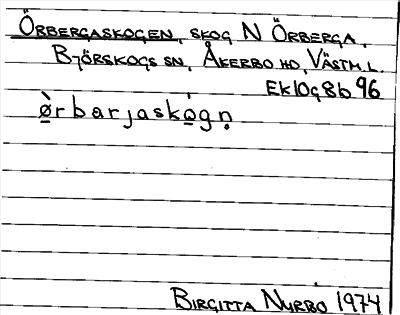 ÖRBERGASKOGEN, SKOG N ÖRBERGA,
BJÖRSKOGS SN, ÅKERBO HD, VÄSTM.L.
EK 10g8b 96
ø̱̀rbarjasko̱̍gṇ
BIRGITTA NYRBO 1974